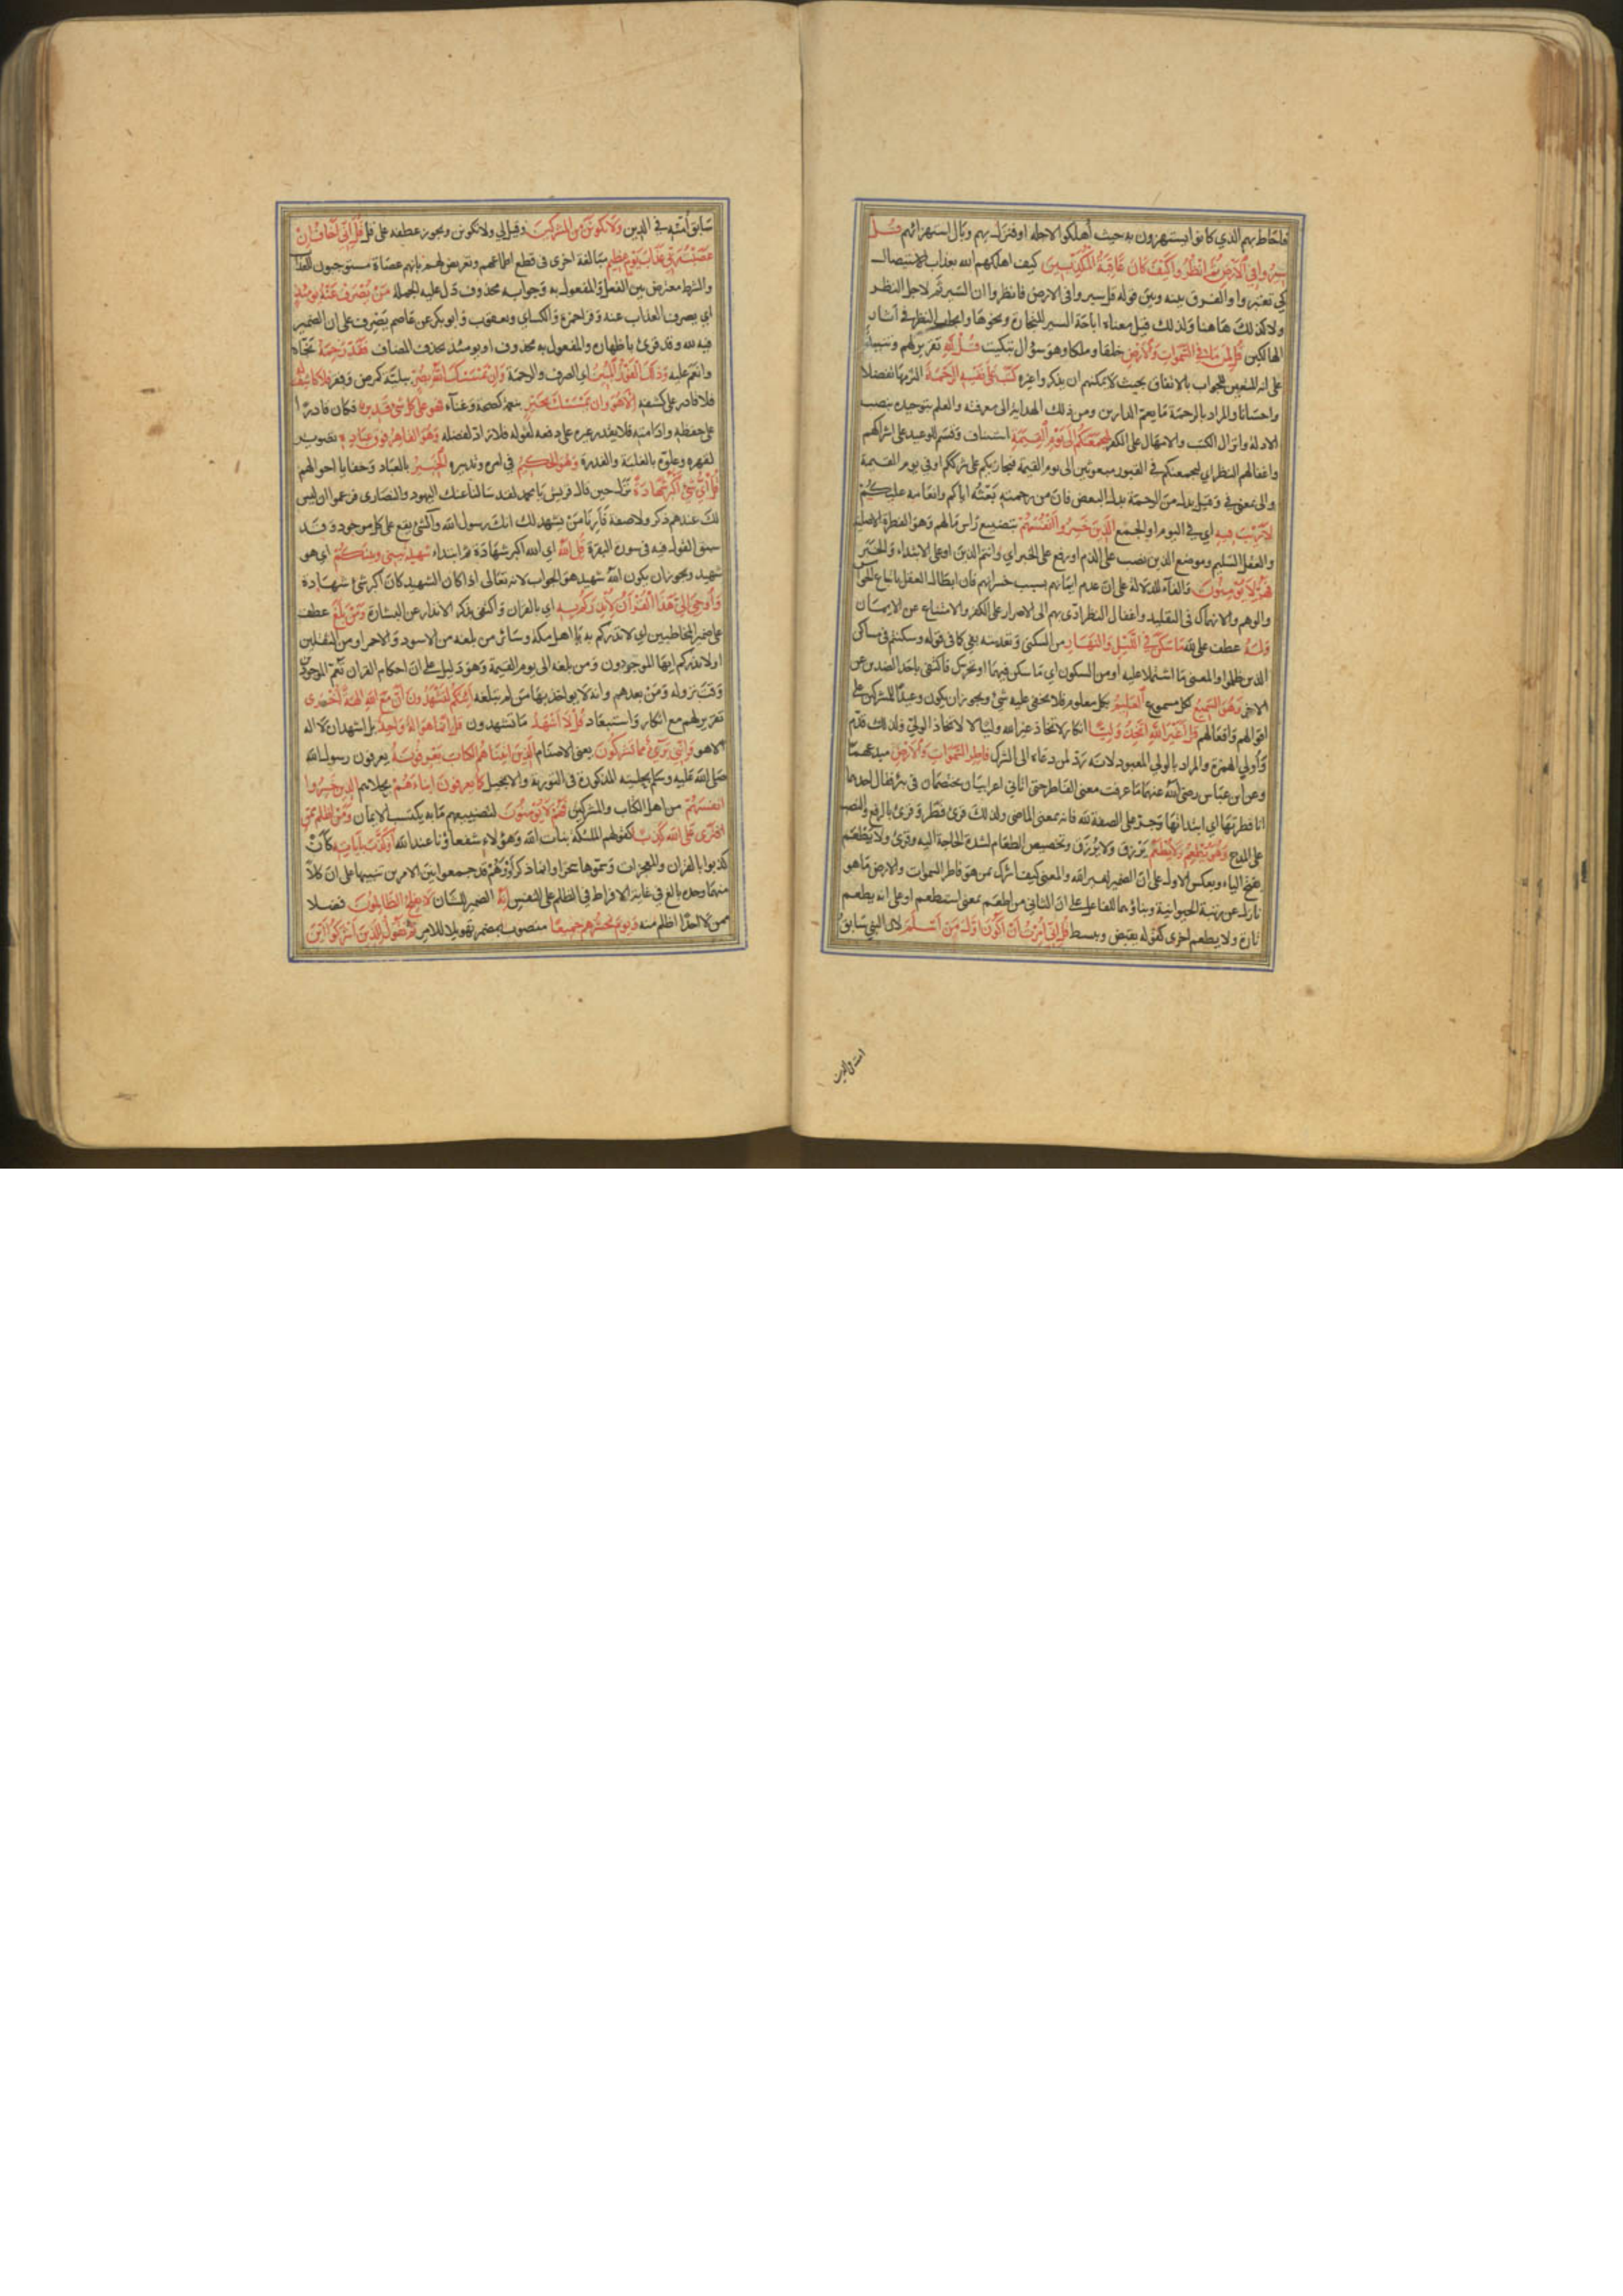 فاحاط بهم الذي كانوا يستهزون به حيث أهلكوا لاجله او فنزل بهم وبال استهزائهم قل
سيروا في الارض ثم انظروا كيف كان عاقبة المكذبين كيف اهلكهم الله بعذاب الاستيصال
كي تعتبروا والفرق بينه وبين قوله قل سيروا في الارض فانظروا ان السير ثم لاجل النظر
ولا كذلك هاهنا ولذلك قيل معناه اباحة السير للتجارة ونحوها وايجاب النظر في آثار
الهالكين قل لمن ما في السموات والارض خلقا وملكا وهو سؤال تبكيت قل لله تقريرلهم وتنبيه
على انه المتعين للجواب بالاتفاق بحيث لا يمكنهم ان يذكروا غيره كتب على نفسه الرحمة التزمها تفضلا
واحسانا والمراد بالرحمة ما يعم الدارين ومن ذلك الهداية الى معرفته والعلم بتوحيده بنصب
الادلة وانزال الكتب والامهال على الكفر ليجمعنكم الى يوم القيمة استئناف وقسم للوعيد على اشراكهم
واغفالهم النظر اي ليجمعنكم في القبور مبعوثين الى يوم القيمة فيجازيكم على شرككم او في يوم القيمة
والى بمعنى في وقيل بدل من الرحمة بدل البعض فان من رحمته بعثه اياكم وانعامه عليكم
لا ريب فيه اي في اليوم او الجمع الذين خسروا انفسهم بتضييع راس مالهم وهو الفطرة الاصلية
والعقل السليم وموضع الذين نصب على الذم او رفع على الخبر اي وانتم الذين او على الابتداء والخبر
فهم لا يؤمنون والفاء للدلالة على ان عدم ايمانهم بسبب خسرانهم فان ابطال العقل باتباع الحواس
والوهم والانهماك في التقليد واغفال النظر ادى بهم الى الاصرار على الكفر والامتناع عن الايمان
وله عطف على لله ما سكن في الليل والنهار من السكنى وتعديته بفي كما في قوله وسكنتم في مساكن
الذين ظلموا والمعنى ما اشتملا عليه او من السكون اي ما سكن فيهما او تحرك فاكتفى باحد الضدين عن
الاخر وهو السميع لكل مسموع العليم بكل معلوم فلا يخفى عليه شئ ويجوز ان يكون وعيدا للمشركين على
اقوالهم وافعالهم قل أغير الله اتخذ وليا انكار لاتخاذ غير الله وليا لا لاتخاذ الولي فلذلك قدم
وأولي الهمزة والمراد بالولي المعبود لانه رد لمن دعاه الى الشرك فاطر السموات والارض مبدعهما
وعن ابن عباس رضي الله عنهما ما عرفت معنى الفاطر حتى اتاني اعرابيان يختصمان في بئر فقال احدهما
انا فطرتها اي ابتداتها وجره على الصفة لله فانه بمعنى الماضي ولذلك قرئ فطر وقرئ بالرفع والنصب
على المدح وهو يطعم ولا يطعم يرزق ولا يرزق وتخصيص الطعام لشدة الحاجة اليه وقرئ ولا يطعم
بفتح الياء وبعكس الاول على ان الضمير لغير الله والمعنى كيف اشرك بمن هو فاطر السموات والارض ما هو
نازل عن رتبة الحيوانية وبناؤهما للفاعل على ان الثاني من اطعم بمعنى استطعم او على انه يطعم
تارة ولا يطعم اخرى كقوله يقبض ويبسط قل اني امرت ان اكون اول من اسلم لان النبي سابق
امته في الدين
سابق أمته في الدين ولا تكونن من المشركين وقيل لي ولا تكونن ويجوز عطفه على قل قل اني اخاف ان
عصيت ربي عذاب يوم عظيم مبالغة اخرى في قطع اطماعهم وتعريض لهم بانهم عصاة مستوجبون للعذاب
والشرط معترض بين الفعل والمفعول به وجوابه محذوف دل عليه الجملة من يصرف عنه يومئذ
اي يصرف العذاب عنه وقرا حمزة والكسائي ويعقوب وابو بكر عن عاصم يصرف على ان الضمير
فيه لله وقد قرئ باظهاره والمفعول به محذوف او يومئذ بحذف المضاف فقد رحمه نجاه
وانعم عليه وذلك الفوز المبين اي الصرف والرحمة وان يمسسك الله بضر ببلية كمرض وفقر فلا كاشف له
فلا قادر على كشفه الا هو وان يمسسك بخير بنعمة كصحة وغناء فهو على كل شئ قدير فكان قادرا
على حفظه وادامته فلا يقدر غيره على دفعه لقوله فلا راد لفضله وهو القاهر فوق عباده تصوير
لقهره وعلوه بالغلبة والقدرة وهو الحكيم في امره وتدبيره الخبير بالعباد وخفايا احوالهم
قل أي شئ اكبر شهادة نزل حين قال قريش يا محمد لقد سالنا عنك اليهود والنصارى فزعموا ان ليس
لك عندهم ذكر ولا صفة فأرنا من يشهد لك انك رسول الله والشئ يقع على كل موجود وقد
سبق القول فيه في سورة البقرة قل الله اي الله اكبر شهادة ثم ابتداء شهيد بيني وبينكم اي هو
شهيد ويجوز ان يكون الله شهيد هو الجواب لانه تعالى اذا كان الشهيد كان اكبر شئ شهادة
وأوحي الي هذا القرآن لأنذركم به اي بالقران واكتفى بذكر الانذار عن البشارة ومن بلغ عطف
على ضمير المخاطبين اي لانذركم به يا اهل مكة وسائر من بلغه من الاسود والاحمر او من الثقلين
او لانذركم ايها الموجودون ومن بلغه الى يوم القيمة وهو دليل على ان احكام القران تعم الموجودين
وقت نزوله ومن بعدهم وانه لا يواخذ بها من لم يبلغه أئنكم لتشهدون أن مع الله الهة أخرى
تقرير لهم مع انكار واستبعاد قل لا أشهد ما تشهدون قل انما هو اله واحد بل اشهد ان لا اله
الا هو وانني برئ مما تشركون يعني الاصنام الذين اتيناهم الكتاب يعرفونه يعرفون رسول الله
صلى الله عليه وسلم بحليته المذكورة في التورية والانجيل كما يعرفون ابناءهم بحلاهم الذين خسروا
انفسهم من اهل الكتاب والمشركين فهم لا يؤمنون لتضييعهم ما به يكتسب الايمان ومن اظلم ممن
افترى على الله كذبا كقولهم الملئكة بنات الله وهؤلاء شفعاؤنا عند الله أو كذب بآياته كأن
كذبوا بالقران والمعجزات وسموها سحرا وانما ذكر أو وهم قد جمعوا بين الامرين تنبيها على ان كلا
منهما وحده بالغ في غاية الافراط في الظلم على النفس إنه الضمير للشان لا يفلح الظالمون فضلا
ممن لا احد اظلم منه ويوم نحشرهم جميعا منصوب بمضمر تهويلا للامر ثم نقول للذين اشركوا أين